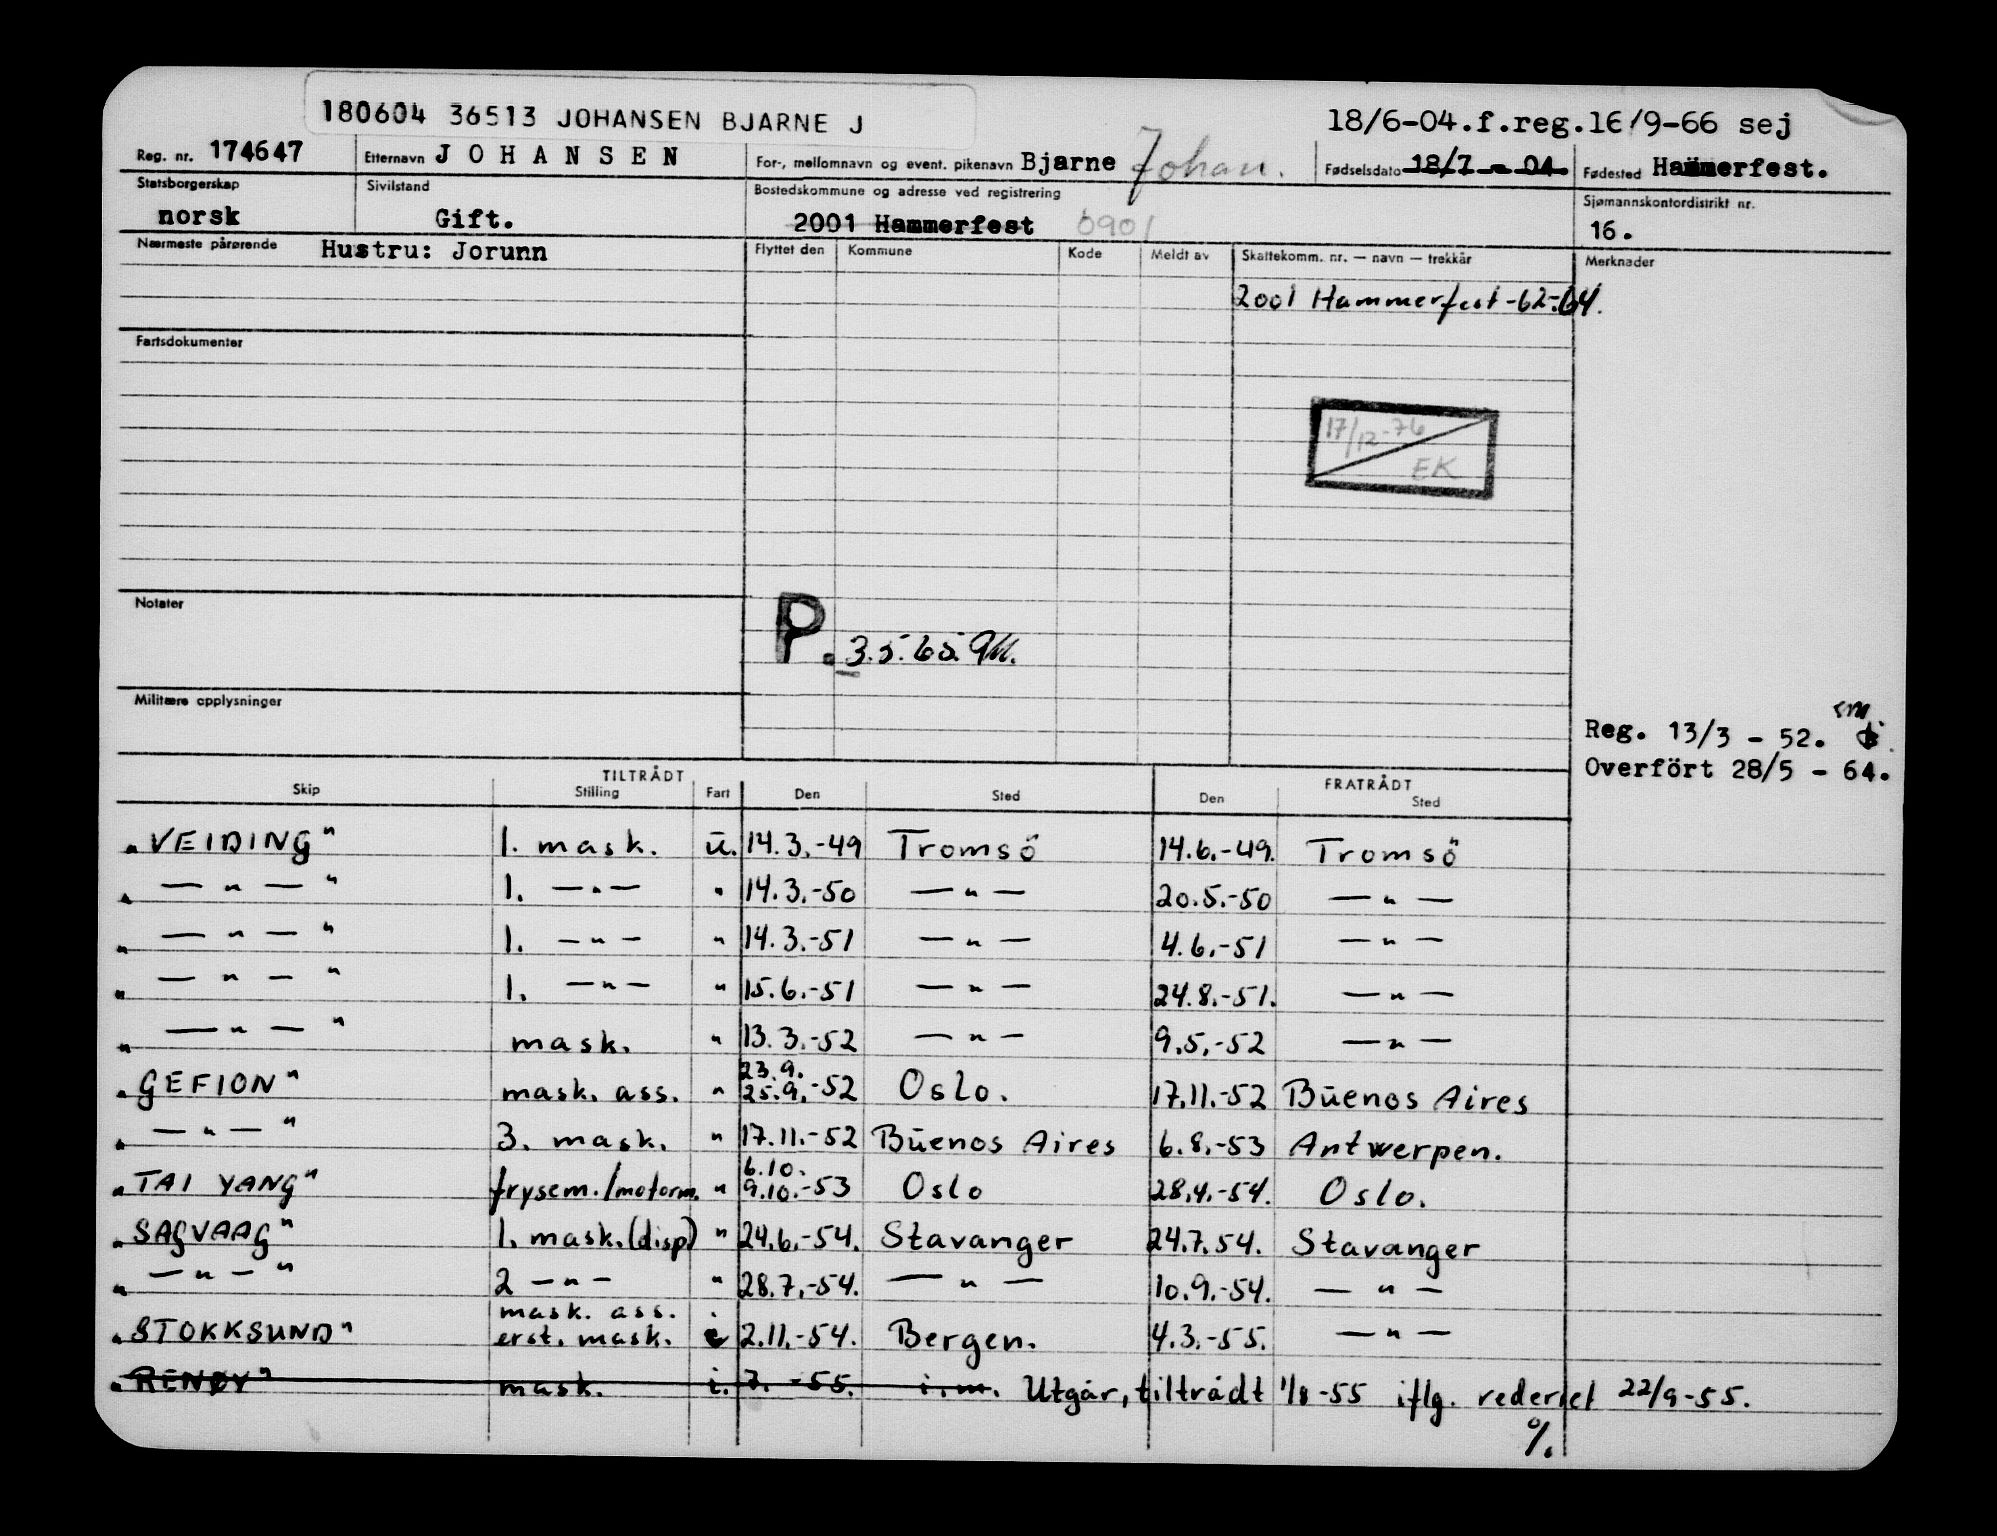 180604 36513 JOHANSEN BJARNE J
18/6-04.f.reg.16/9-66 sej
Reg. nr. 174647 Etternavn JOHANSEN For-, mellomnavn og event. pikenavn Bjarne Johan. Fødselsdato 18/7 - 04. Fødested Hammerfest.
Statsborgerskap Sivilstand Bostedskommune og adresse ved registrering Sjømannskontordistrikt nr.
norsk Gift. 2001 Hammerfest 0901 16.
Nærmeste pårørende Hustru: Jorunn Flyttet den Kommune Kode Meldt av Skattekomm. nr. — navn — trekkår Merknader
2001 Hammerfest-62-64.
Fartsdokumenter
17/12-76
EK
Notater
P. 3.5.65.
Militære opplysninger
Reg. 13/3 - 52.
Overfört 28/5 - 64.
TILTRÅDT FRATRÅDT
Skip Stilling Fart Den Sted Den Sted
"VEIDING" 1. mask. u. 14.3.-49 Tromsö 14.6.-49. Tromsö
" — " — " 1. — " — " 14.3.-50 — " — 20.5.-50 — " —
" — " — " 1. — " — " 14.3.-51 — " — 4.6.-51 — " —
" — " — " 1. — " — " 15.6.-51 — " — 24.8.-51. — " —
" — " — " mask. " 13.3.-52 — " — 9.5.-52 — " —
23.9.
"GEFION" mask. ass. " 25.9.-52 Oslo. 17.11.-52 Buenos Aires
" — " — " 3. mask. " 17.11.-52 Buenos Aires 6.8.-53 Antwerpen.
6.10.
"TAI YANG" frysem./motorm. " 9.10.-53 Oslo 28.4.-54. Oslo.
"SAGVAAG" 1. mask.(disp) " 24.6.-54. Stavanger 24.7.54. Stavanger
" — " — " 2 — " — " 28.7.-54. — " — 10.9.-54. — " —
mask. ass. i
"STOKKSUND" erst. mask. 2.11.-54. Bergen. 4.3.-55. — " —
"RENØY" mask. i. 7. -55. i.m. Utgår, tiltrådt 1/8-55 iflg. rederiet 22/9-55.
%.